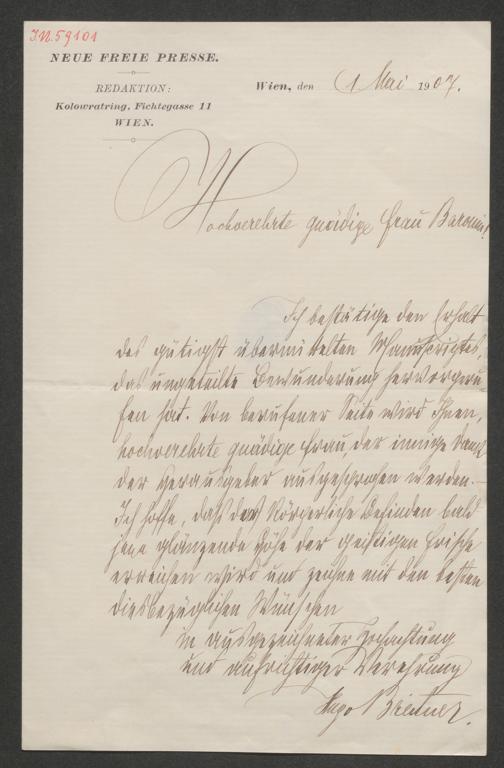 I.N. 59101
NEUE FREIE PRESSE.
REDAKTION:
Kolowratring, Fichtegasse 11
WIEN.
Wien, den 1 Mai 1907.
Hochverehrte gnädige Frau Baronin!
Ich bestätige den Erhalt
des gütigst übermittelten Manuscriptes,
das ungeteilte Bewunderung hervorgeru-
fen hat. Von berufener Seite wird Ihnen,
hochverehrte gnädige Frau, der innige Dank
der Herausgeber ausgesprochen werden.
Ich hoffe, daß das körperliche Befinden bald
jene glänzende Höhe der geistigen Frische
erreichen wird und zeichne mit den besten
diesbezüglichen Wünschen
in ausgezeichneter Hochachtung
und aufrichtiger Verehrung
Hugo